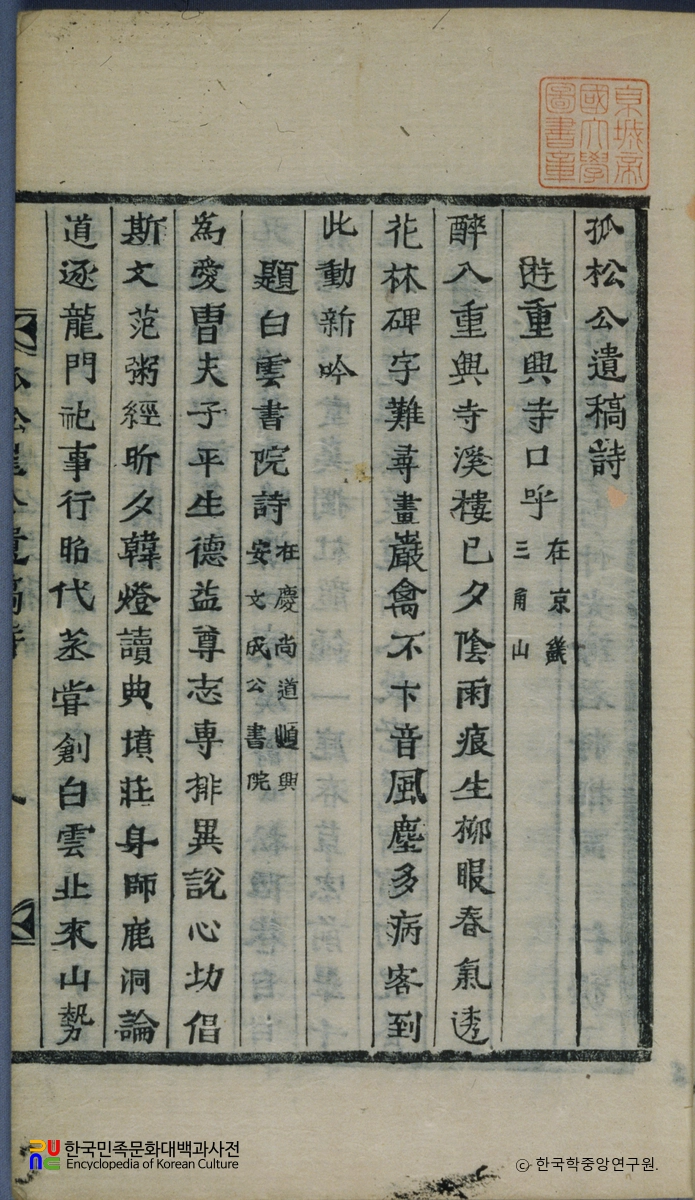 京城帝
國大學
圖書章
孤松公遺稿詩
遊重興寺口呼 在京畿三角山
醉入重興寺溪樓已夕陰雨痕生柳眼春氣透
花林碑字難尋畫巖禽不卞音風塵多病客到
此動新吟
題白雲書院詩 在慶尚道順興安文成公書院
為愛曺夫子平生德益尊志専排異說心功倡
斯文范粥經昕夕韓燈讀典墳莊身師鹿洞論
道逐龍門祀事行昭代烝嘗創白雲北來山勢
한국민족문화대백과사전
Encyclopedia of Korean Culture
ⓒ 한국학중앙연구원.